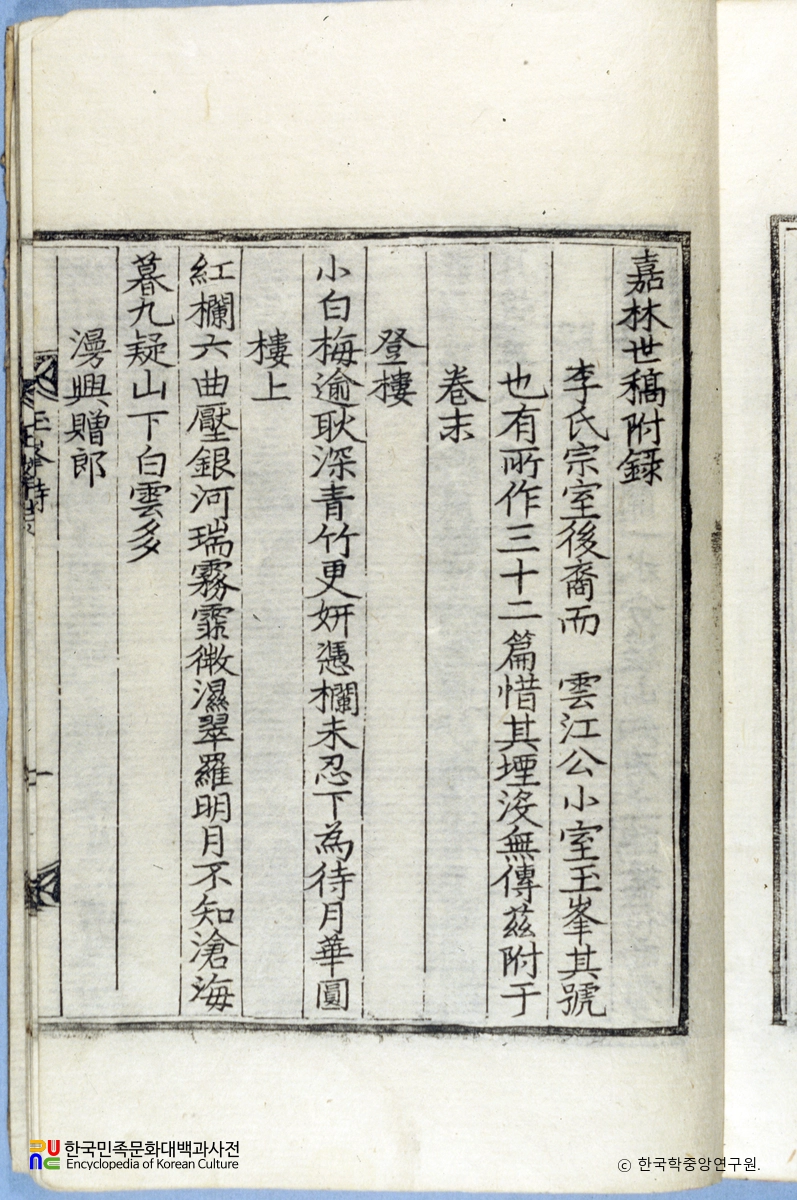 嘉林世稿附録
李氏宗室後裔而　雲江公小室玉峯其號
也有所作三十二篇惜其堙沒無傳茲附于
卷末
登樓
小白梅逾耿深青竹更妍憑欄未忍下為待月華圓
樓上
紅欄六曲壓銀河瑞霧霏微濕翠羅明月不知滄海
暮九疑山下白雲多
漫興贈郎
한국민족문화대백과사전
Encyclopedia of Korean Culture
© 한국학중앙연구원.